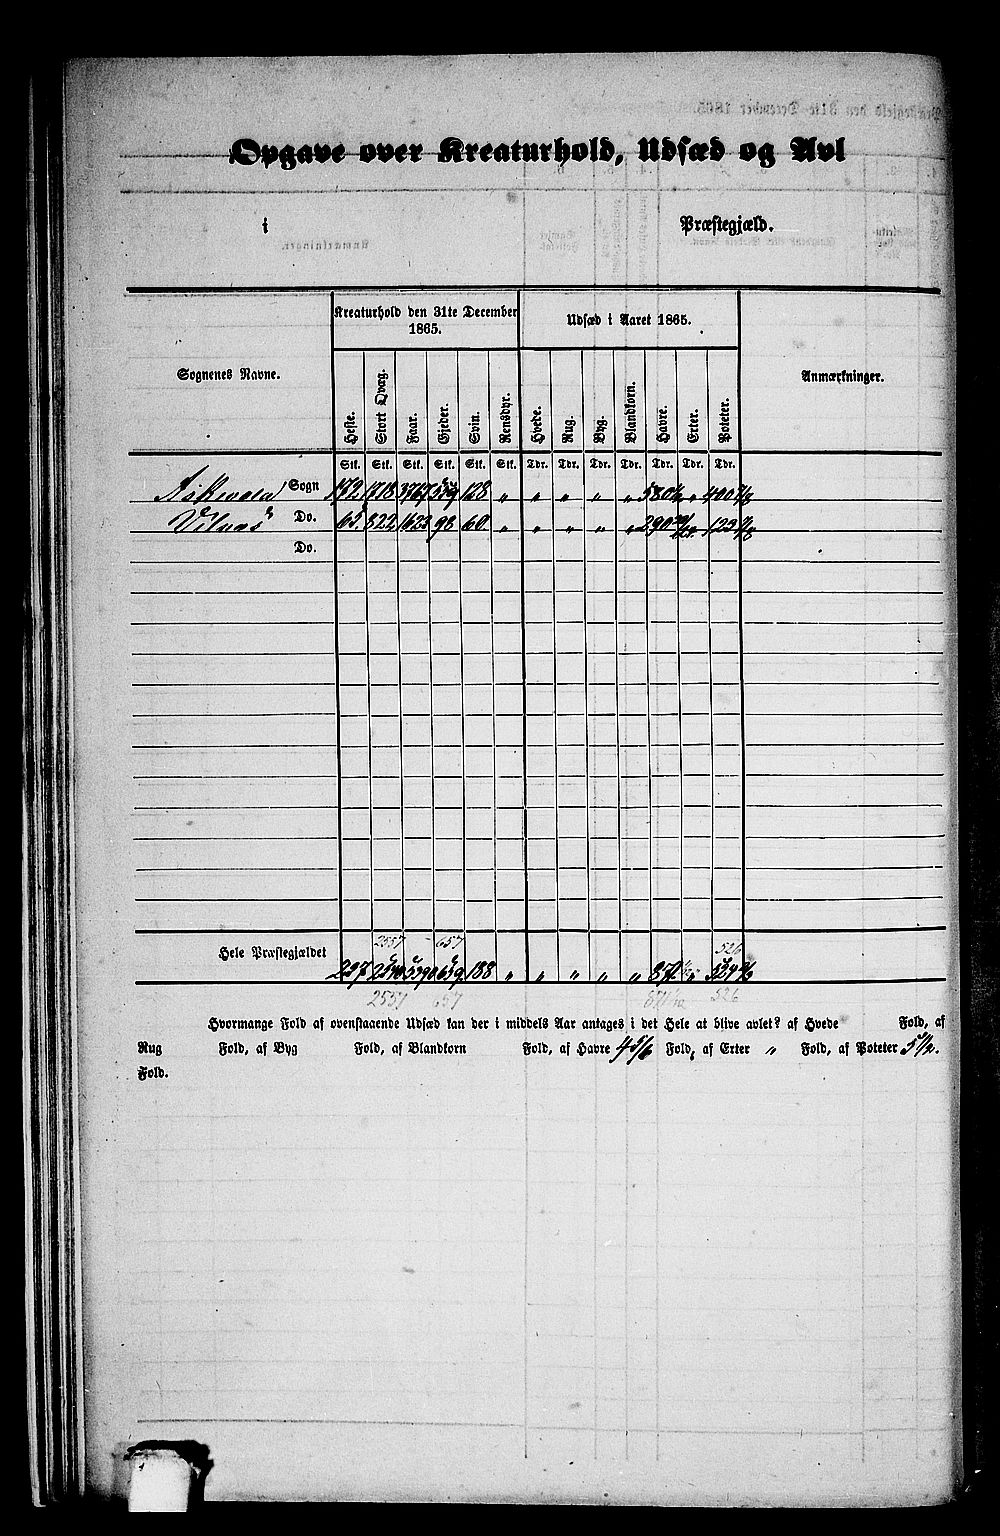 Opgave over Kreaturhold, Udsæd og Avl
i Præstegjæld.
Sognenes Navne. Kreaturhold den 31te December 1865. Udsæd i Aaret 1865. Anmærkninger.
Heste. Stort Qvæg. Faar. Gjeder. Svin. Rensdyr. Hvede. Rug. Byg. Blandkorn. Havre. Erter. Poteter.
Stk. Stk. Stk. Stk. Stk. Stk. Tdr. Tdr. Tdr. Tdr. Tdr. Tdr. Tdr.
Askevold Sogn 172 1718 3767 559 128 „ „ „ „ „ 580 „ 400
Vilnæs Do. 65. 822 1623 98 60 „ „ „ „ „ 290 123
Do.
2557 657 526
Hele Præstegjældet 237 2540 5390 659 188 „ „ „ „ „ 871 „
2557 657 526
Hvormange Fold af ovenstaaende Udsæd kan der i middels Aar antages i det Hele at blive avlet? af Hvede Fold, af
Rug Fold, af Byg Fold, af Blandkorn Fold, af Havre 4 5/6 Fold, af Erter „ Fold, af Poteter 5 1/2.
Fold.